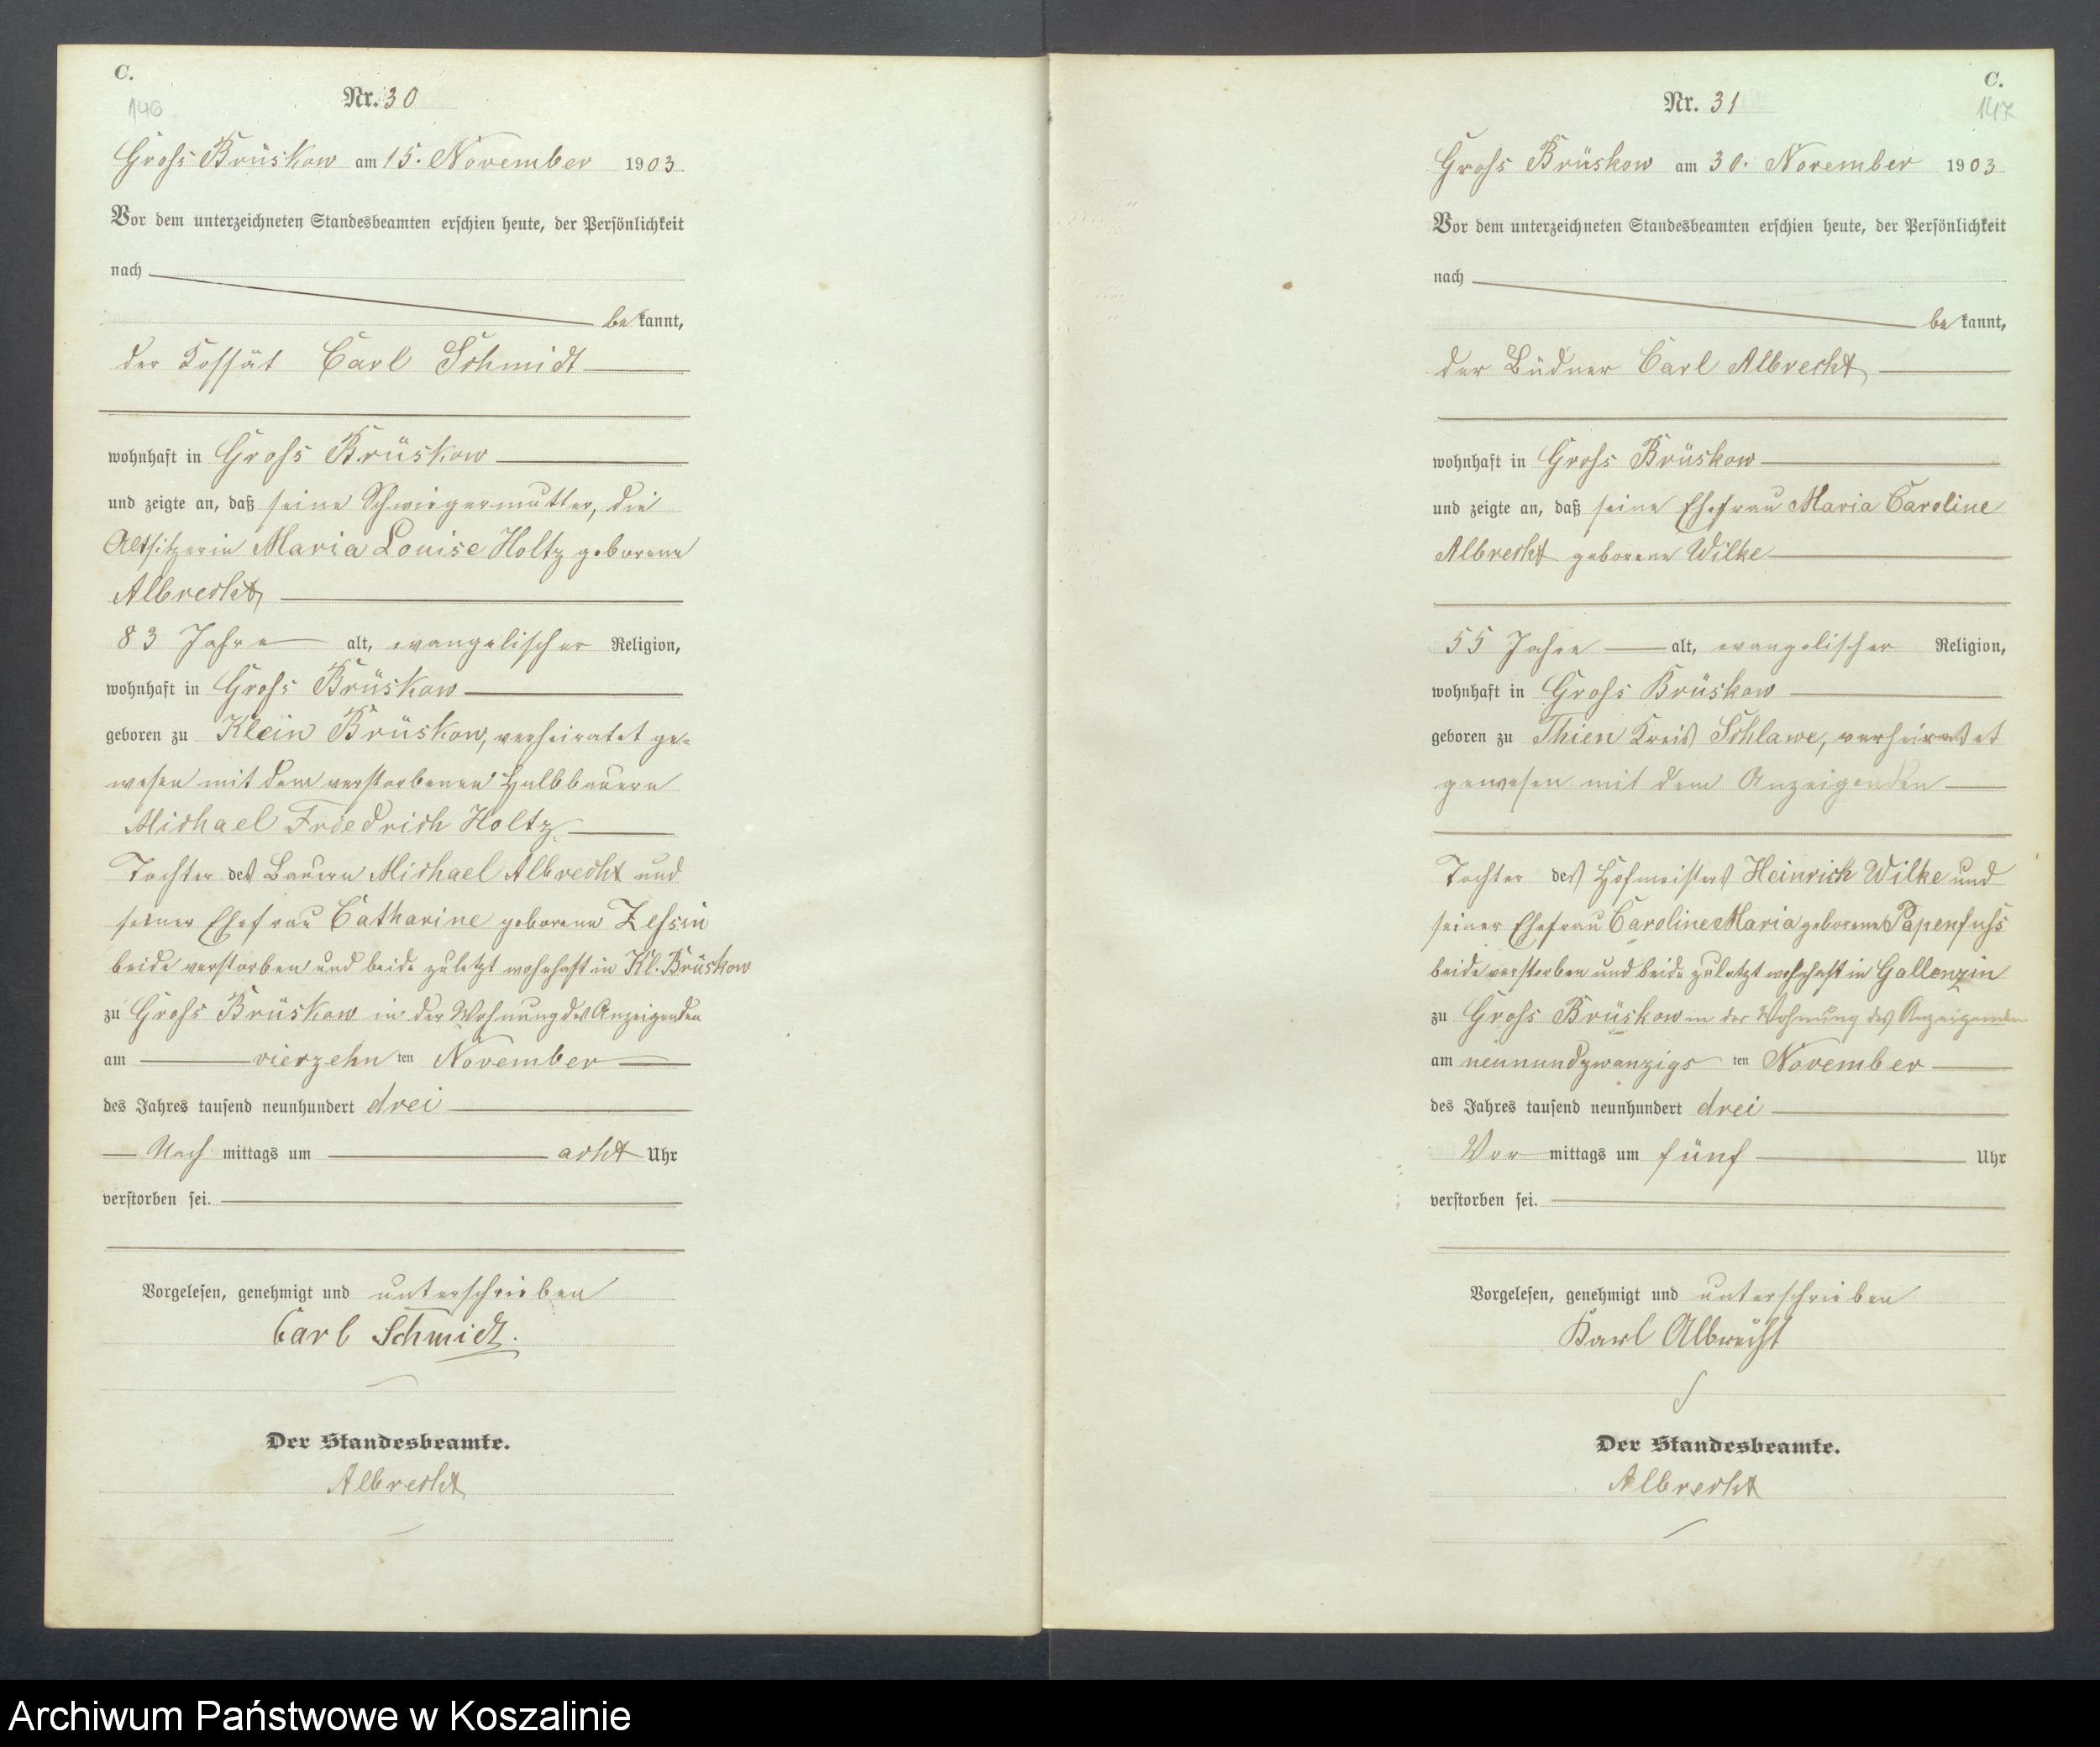 C.
146
Nr. 30
Gross Brüskow am 15. November 1903
Vor dem unterzeichneten Standesbeamten erschien heute, der Persönlichkeit
nach
be kannt,
der Kossät Carl Schmidt
wohnhaft in Gross Brüskow
und zeigte an, daß seine Schwiegermutter, die
Altsitzerin Maria Louise Holtz geborene
Albrecht
83 Jahre alt, evangelischer Religion,
wohnhaft in Gross Brüskow
geboren zu Klein Brüskow, verheiratet ge-
wesen mit dem verstorbenen Halbbauern
Michael Friedrich Holtz
Tochter des Bauern Michael Albrecht und
seiner Ehefrau Catharine geborene Zessin
beide verstorben und beide zuletzt wohnhaft in Kl. Brüskow
zu Gross Brüskow in der Wohnung des Anzeigenden
am vierzehn ten November
des Jahres tausend neunhundert drei
Nach mittags um acht Uhr
verstorben sei.
Vorgelesen, genehmigt und unterschrieben
Carl Schmidt.
Der Standesbeamte.
Albrecht
C.
147
Nr. 31
Gross Brüskow am 30. November 1903
Vor dem unterzeichneten Standesbeamten erschien heute, der Persönlichkeit
nach
be kannt,
der Büdner Carl Albrecht
wohnhaft in Gross Brüskow
und zeigte an, daß seine Ehefrau Maria Caroline
Albrecht geborene Wilke
55 Jahre alt, evangelischer Religion,
wohnhaft in Gross Brüskow
geboren zu Thien Kreis Schlawe, verheiratet
gewesen mit dem Anzeigenden
Tochter des Hofmeisters Heinrich Wilke und
seiner Ehefrau Caroline Maria geborene Papenfuss
beide verstorben und beide zuletzt wohnhaft in Gallenzin
zu Gross Brüskow in der Wohnung des Anzeigenden
am neunundzwanzigs ten November
des Jahres tausend neunhundert drei
Vor mittags um fünf Uhr
verstorben sei.
Vorgelesen, genehmigt und unterschrieben
Karl Albrecht
Der Standesbeamte.
Albrecht
Archiwum Państwowe w Koszalinie